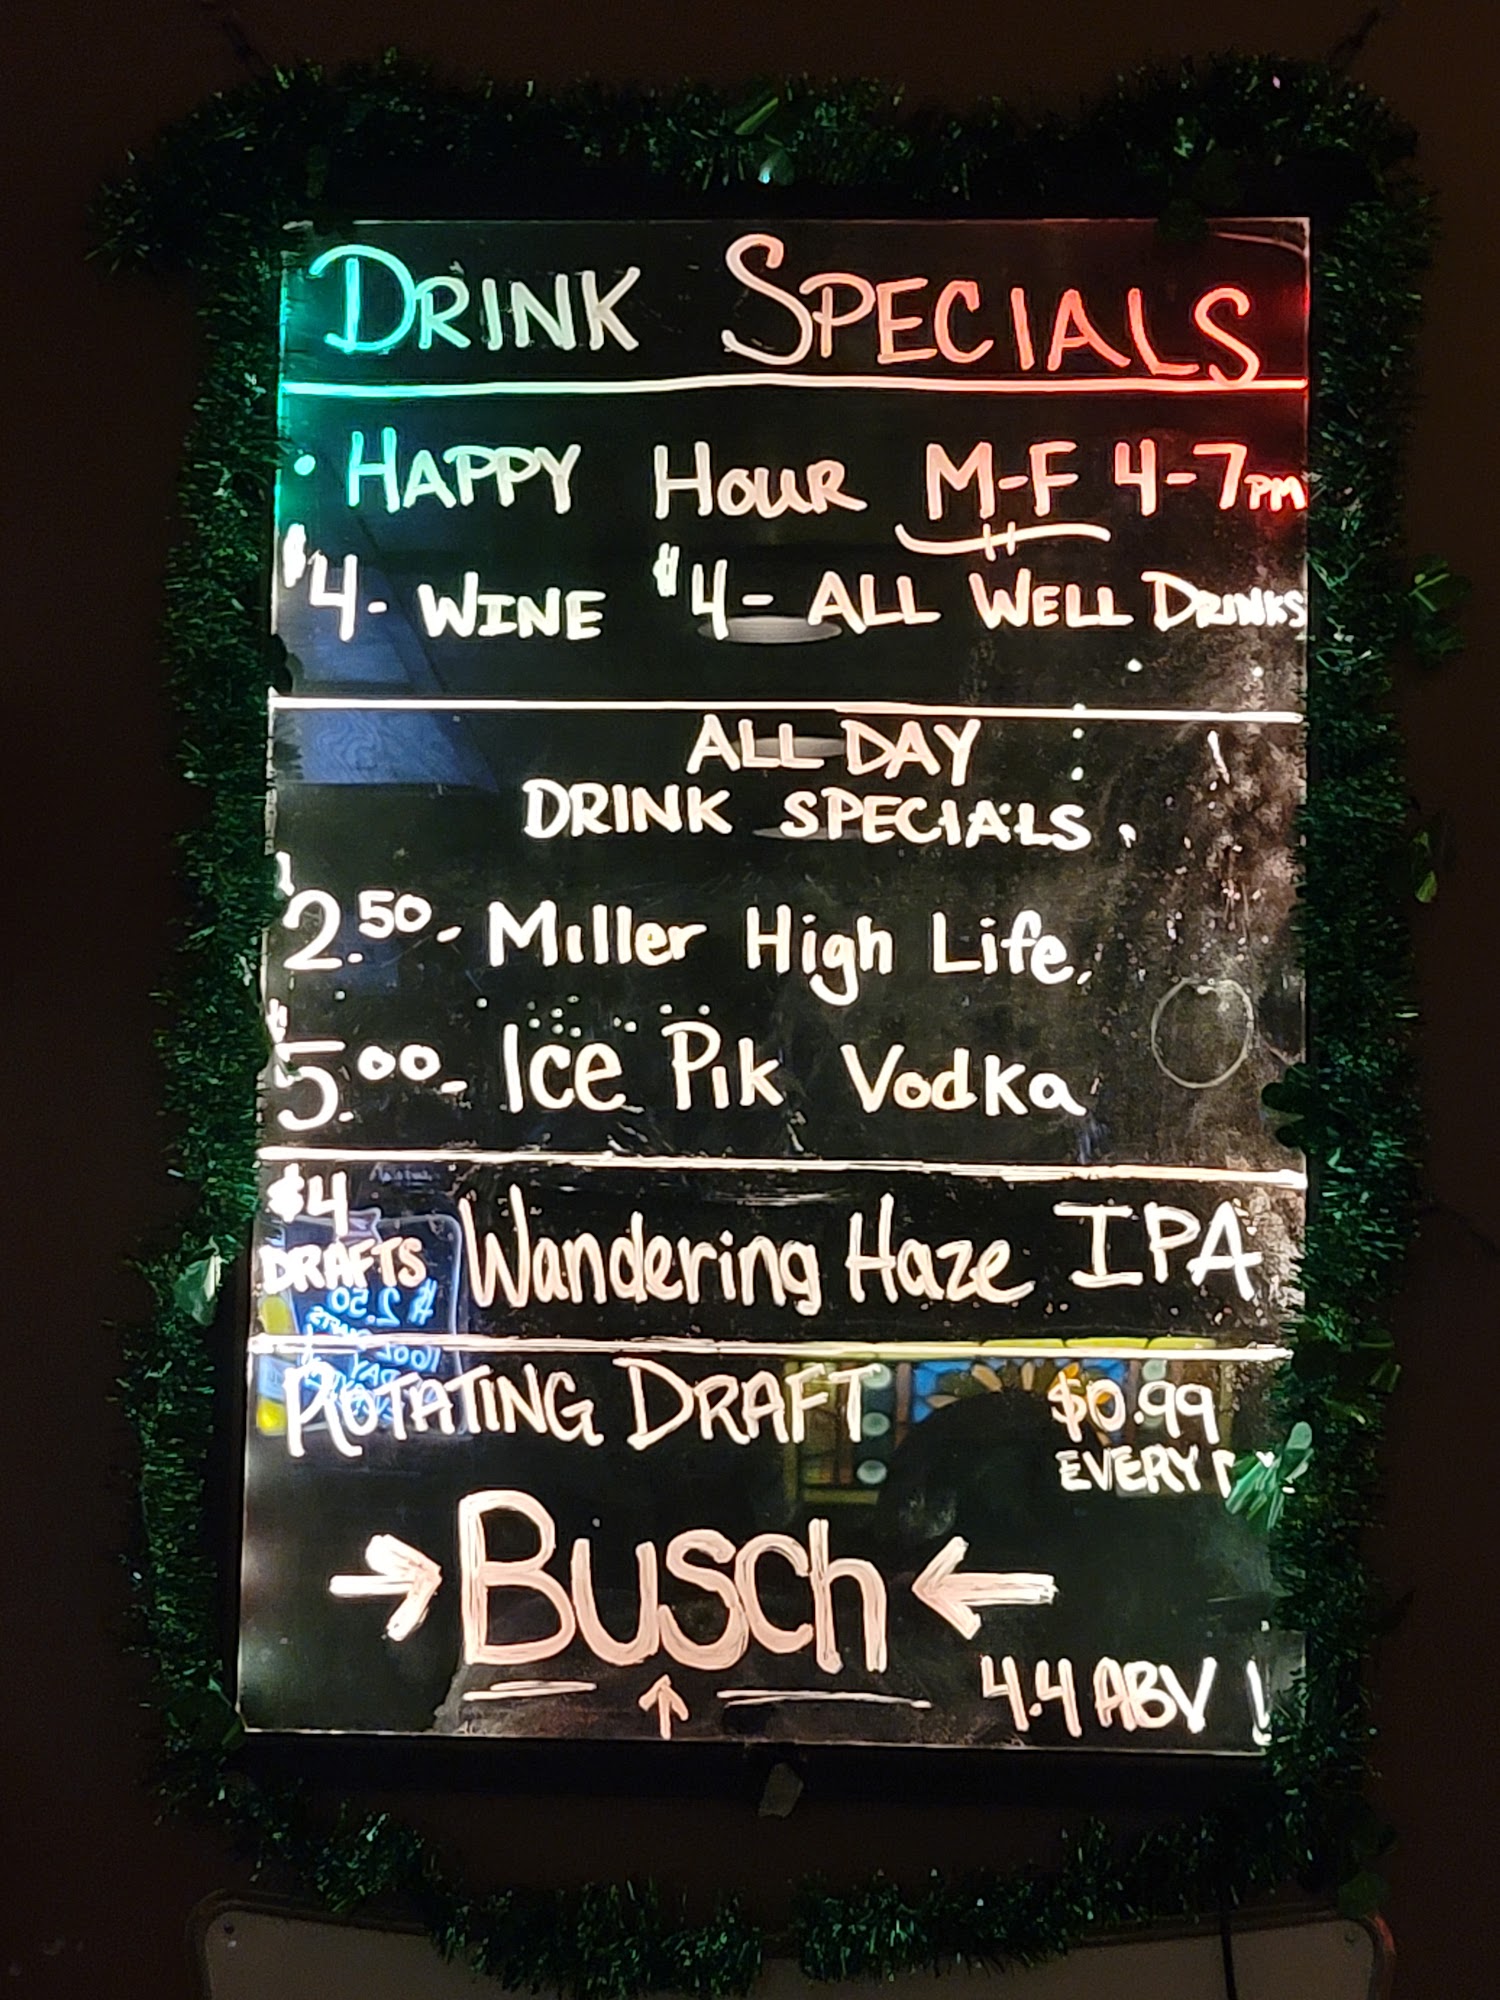 DRINK SPECIALS
• HAPPY HOUR M-F 4-7PM
$4- WINE $4- ALL WELL DRINKS
ALL DAY
DRINK SPECIALS
2.50- Miller High Life
$5.00- Ice Pik Vodka
$4
DRAFTS Wandering Haze IPA
ROTATING DRAFT $0.99
EVERY
→ BUSCH ←
4.4 ABV !